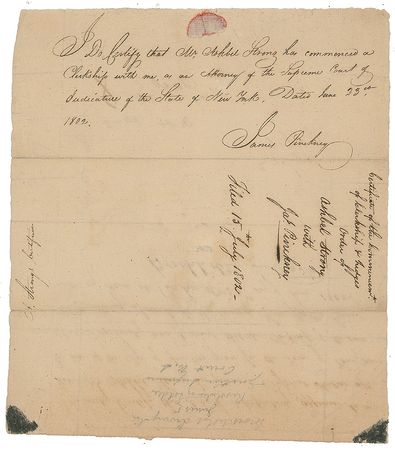 I Do Certify that Mr Ashbel Strong has commenced a
Clerkship with me, as an Attorney of the Supreme Court of
Judicature of the State of New York, Dated June 23rd
1802.
James Pinckney
Certificate of the Commencemt
of Clerkship & Judges
Order of
Ashbel Strong
with
Jas Pinckney
Filed 15th July 1802
Court